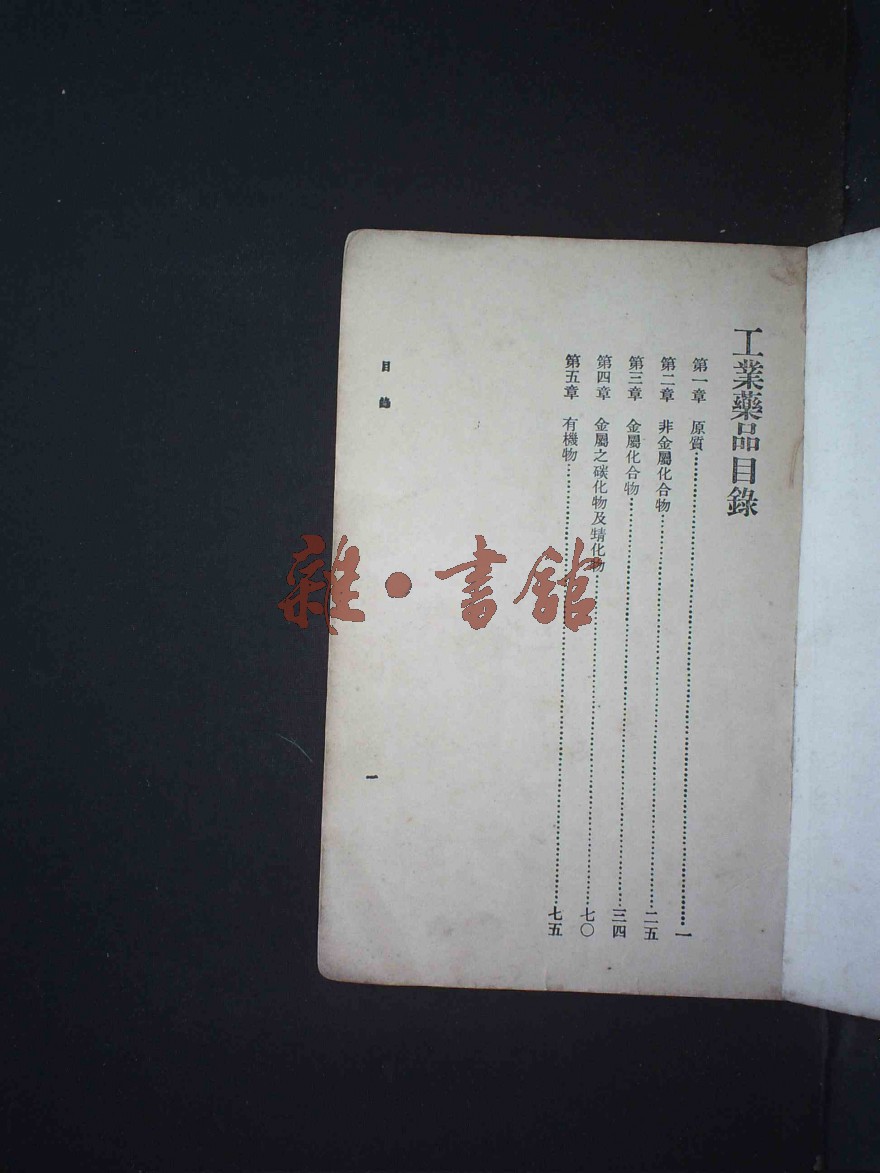 工業藥品目錄
第一章 原質……一
第二章 非金屬化合物……二五
第三章 金屬化合物……三四
第四章 金屬之碳化物及䝼化物……七〇
第五章 有機物……七五
目錄
一
雜·書館